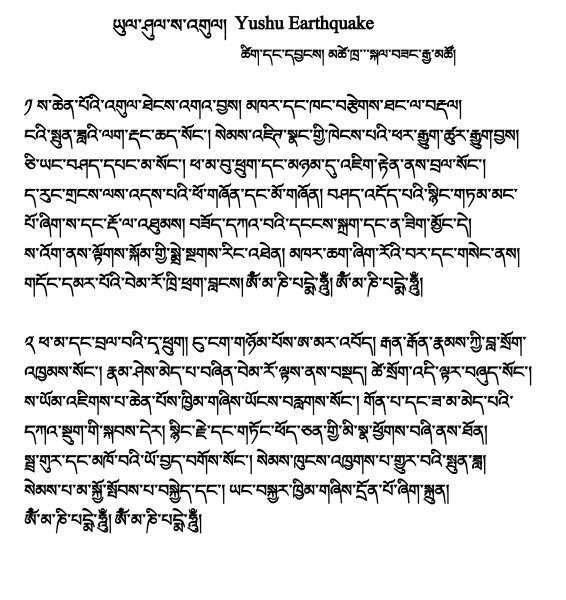 ཡུལ་ཤུལ་ས་འགུལ། Yushu Earthquake
ཚིག་དང་དབྱངས། མཚོ་ཁྲ་་་སྐལ་བཟང་རྒྱ་མཚོ།
༡ ས་ཆེན་པོའི་འགུལ་ཐེངས་འགའ་བྱས། མཁར་དང་ཁང་བརྩེགས་ཐང་ལ་བརྡལ།
ངའི་སྤུན་ཟླའི་ལག་རྡང་ཆད་སོང་། སེམས་འཇིཊ་སྣང་གྱི་ཁེངས་པའི་ཕར་རྒྱུག་ཚུར་རྒྱུགབྱས།
ཅི་ཡང་བཤད་དཔང་མ་སོང་། ཕ་མ་བུ་ཕྲུག་དང་མཉམ་དུ་འཇིག་རྟེན་ནས་བྲལ་སོང་།
ད་རུང་གྲངས་ལས་འདས་པའི་ཕོ་གཞོན་དང་མོ་གཞོན། བཤད་འདོད་པའི་སྙིང་གཏམ་མང་
པོ་ཞིག་ས་དང་རྡོ་ལ་འཐུམས། བཟོད་དཀའ་བའི་དངངས་སྐྲག་དང་ན་ཟིག་མྱོང་དེ།
ས་འོག་ནས་ལྟོགས་སྐོམ་གྱི་སྨྲེ་སྔགས་རིང་འཐེན། མཁར་ཆག་ཞིག་རོའི་བར་དང་གསེང་ནས།
གདོང་དམར་པོའི་བེམ་རོ་ཁྲི་ཕྲག་བླངས། ཨོཾ་མ་ཎི་པདྨེ་ཧཱུྃ། ཨོཾ་མ་ཎི་པདྨེ་ཧཱུྃ།
༢ ཕ་མ་དང་བྲལ་བའི་དྭ་ཕྲུག། ངུ་ངག་གཉོམ་པོས་ཨ་མར་འབོད། རྒན་རྒོན་རྣམས་ཀྱི་བླ་སྲོག་
འཁྱམས་སོང་། རྣམ་ཤེས་མེད་པ་བཞིན་བེམ་རོ་ལྟས་ནས་བསྡད། ཚེ་སྲོག་འདི་ལྟར་བཞུད་སོང་།
ས་ཡོམ་འཇིགས་པ་ཆེན་པོས་ཁྱིམ་གཞིས་ཡོངས་བརླགས་སོང་། གོན་པ་དང་ཟ་མ་མེད་པའི་
དཀའ་སྡུག་གི་སྐབས་དེར། སྙིང་རྗེ་དང་གཏོང་ཕོད་ཅན་གྱི་མི་སྣ་ཕྱོགས་བཞི་ནས་ཐོན།
སྦྲ་གུར་དང་མཁོ་བའི་ཡོ་བྱད་བགོས་སོང་། སེམས་ཁུངས་འཁྱགས་པ་གྱུར་བའི་སྤུན་ཟླ།
སེམས་པ་མ་སྐྱོ་སྤོབས་པ་བསྐྱེད་དང་། ཡང་བསྐྱར་ཁྱིམ་གཞིས་དྲོན་པོ་ཞིག་སྐྲུན།
ཨོཾ་མ་ཎི་པདྨེ་ཧཱུྃ། ཨོཾ་མ་ཎི་པདྨེ་ཧཱུྃ།